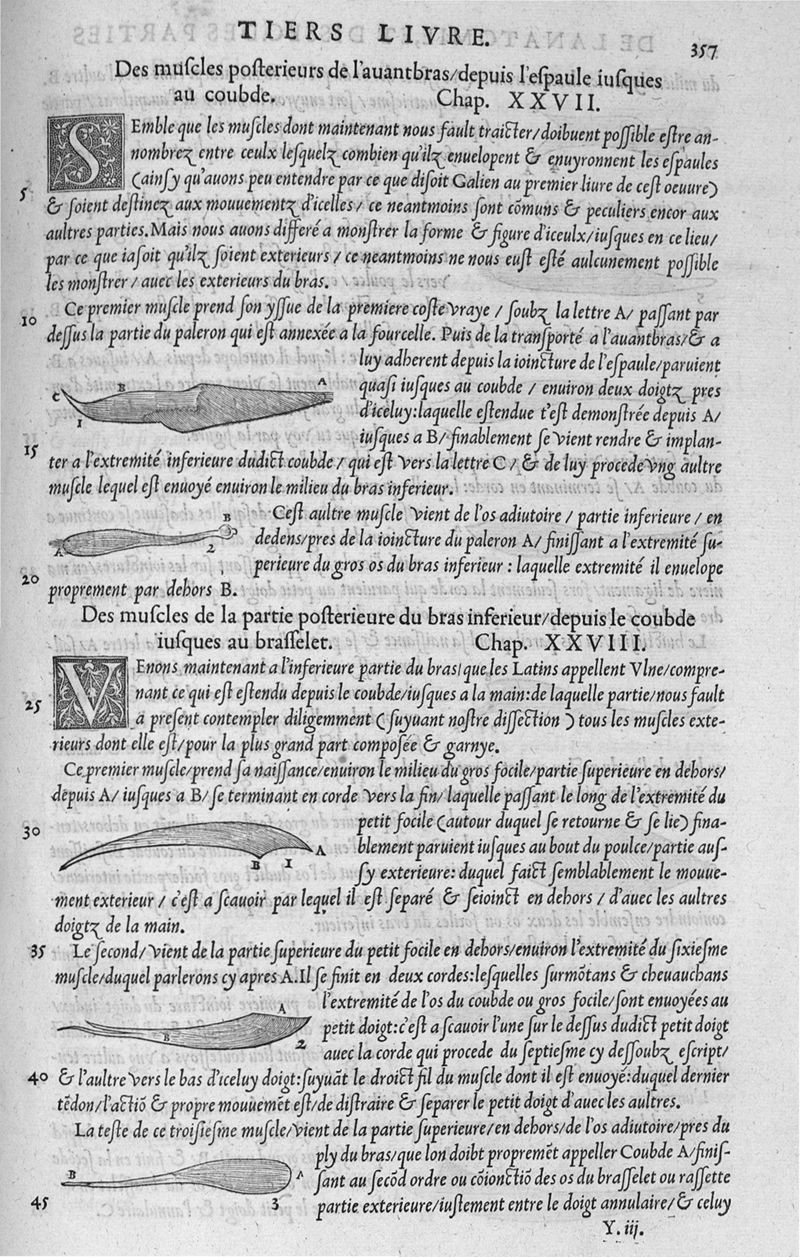 TIERS LIVRE.
357
Des muſcles poſterieurs de l'auantbras/depuis l'eſpaule iuſques
au coubde. Chap. XXVII.
SEmble que les muſcles dont maintenant nous fault traicter/doibuent poſſible eſtre an-
nombrez entre ceulx leſquelz combien qu'ilz enuelopent & enuyronnent les eſpaules
(ainſy qu'auons peu entendre par ce que diſoit Galien au premier liure de ceſt oeuure)
5
& ſoient deſtinez aux mouuementz d'icelles/ ce neantmoins ſont cõmuns & peculiers encor aux
aultres parties. Mais nous auons differé a monſtrer la forme & figure d'iceulx/iuſques en ce lieu/
par ce que iaſoit qu'ilz ſoient exterieurs / ce neantmoins ne nous euſt eſté aulcunement poſſible
les monſtrer / auec les exterieurs du bras.
Ce premier muſcle prend ſon yſſue de la premiere coſte vraye / ſoubz la lettre A/ paſſant par
10
deſſus la partie du paleron qui eſt annexée a la fourcelle. Puis de la tranſporté a l'auantbras/& a
luy adherent depuis la ioincture de l'eſpaule/paruient
quaſi iuſques au coubde / enuiron deux doigtz pres
d'iceluy:laquelle eſtendue t'eſt demonſtrée depuis A/
iuſques a B/ finablement ſe vient rendre & implan-
C B A
1
15
ter a l'extremité inferieure dudict coubde / qui eſt vers la lettre C / & de luy procede vng aultre
muſcle lequel eſt enuoyé enuiron le milieu du bras inferieur.
Ceſt aultre muſcle vient de l'os adiutoire / partie inferieure / en
dedens/pres de la ioincture du paleron A/ finiſſant a l'extremité ſu-
perieure du gros os du bras inferieur : laquelle extremité il enuelope
A 2 B
20
proprement par dehors B.
Des muſcles de la partie poſterieure du bras inferieur/depuis le coubde
iuſques au braſſelet. Chap. XXVIII.
VEnons maintenant a l'inferieure partie du bras/que les Latins appellent Vlne/compre-
nant ce qui eſt eſtendu depuis le coubde/iuſques a la main:de laquelle partie/nous fault
25
a preſent contempler diligemment (ſuyuant noſtre diſſection) tous les muſcles exte-
rieurs dont elle eſt/pour la plus grand part compoſée & garnye.
Ce premier muſcle/prend ſa naiſſance/enuiron le milieu du gros focile/partie ſuperieure en dehors/
depuis A/ iuſques a B/ ſe terminant en corde vers la fin/ laquelle paſſant le long de l'extremité du
30
petit focile (autour duquel ſe retourne & ſe lie) fina-
blement paruient iuſques au bout du poulce/partie auſ-
ſy exterieure: duquel faict ſemblablement le mouue-
B 1 A
ment exterieur / c'eſt a ſcauoir par lequel il eſt ſeparé & ſeioinct en dehors / d'auec les aultres
doigtz de la main.
35
Le ſecond/vient de la partie ſuperieure du petit focile en dehors/enuiron l'extremité du ſixieſme
muſcle/duquel parlerons cy apres A. Il ſe finit en deux cordes:leſquelles ſurmõtans & cheuauchans
l'extremité de l'os du coubde ou gros focile/ſont enuoyées au
petit doigt:c'eſt a ſcauoir l'une ſur le deſſus dudict petit doigt
auec la corde qui procede du ſeptieſme cy deſſoubz eſcript/
B A
2
40
& l'aultre vers le bas d'iceluy doigt:ſuyuãt le droict fil du muſcle dont il eſt enuoyé:duquel dernier
tẽdon/l'actiõ & propre mouuemẽt eſt/de diſtraire & ſeparer le petit doigt d'auec les aultres.
La teſte de ce troiſieſme muſcle/vient de la partie ſuperieure/en dehors/de l'os adiutoire/pres du
ply du bras/que lon doibt propremẽt appeller Coubde A/finiſ-
ſant au ſecõd ordre ou cõionctiõ des os du braſſelet ou raſſette
B A
3
45
partie exterieure/iuſtement entre le doigt annulaire/& celuy
Y. iij.